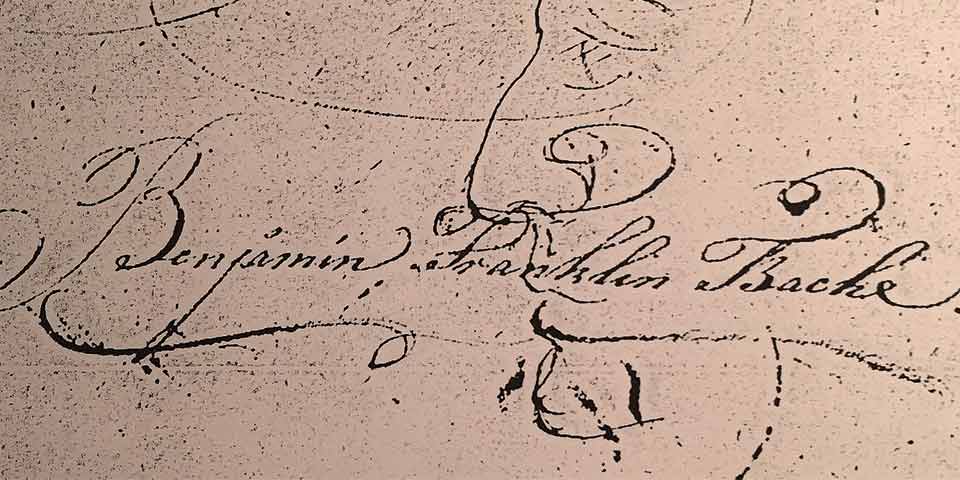 Benjamin Franklin Bache